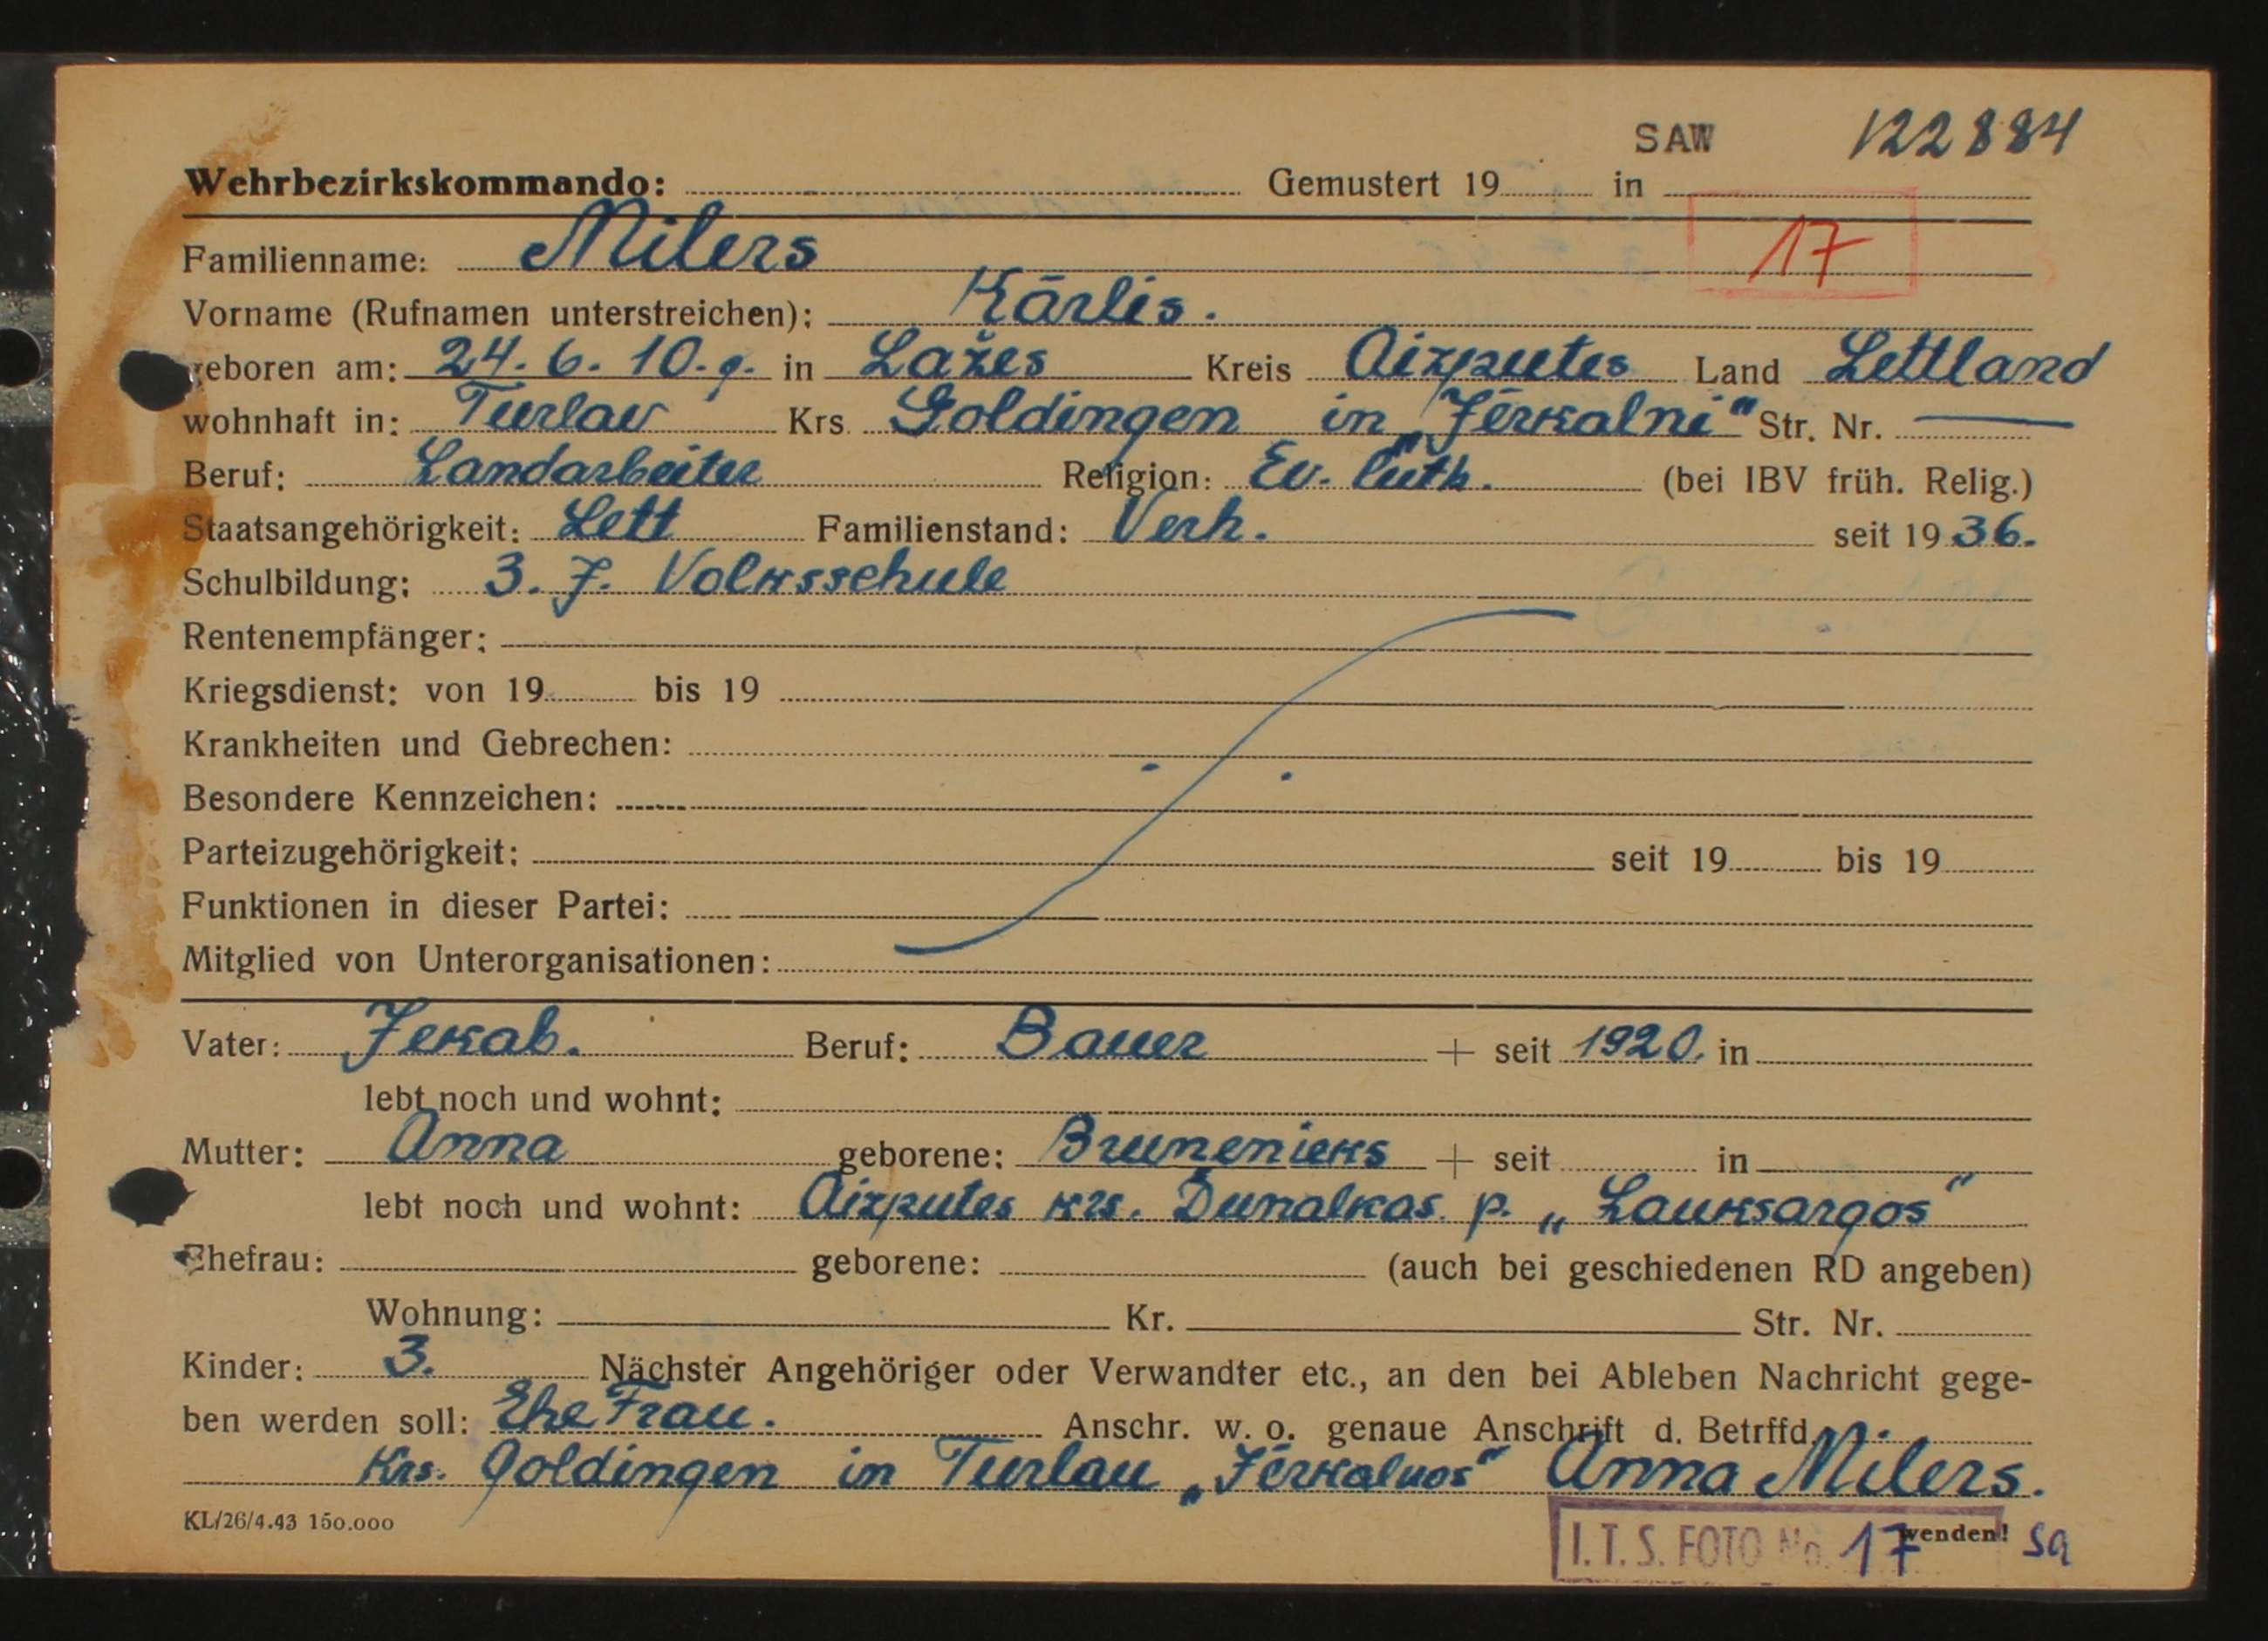 SAW 122884
Wehrbezirkskommando: Gemustert 19 in
17
Familienname: Milers
Vorname (Rufnamen unterstreichen): Kārlis.
geboren am: 24. 6. 10. g. in Lažes Kreis Aizputes Land Lettland
wohnhaft in: Turlav Krs. Goldingen in „Jērkalni" Str. Nr. —
Beruf: Landarbeiter Religion: Ev. luth. (bei IBV früh. Relig.)
Staatsangehörigkeit: Lett Familienstand: Verh. seit 1936.
Schulbildung: 3. J. Volksschule
Rentenempfänger:
Kriegsdienst: von 19 bis 19
Krankheiten und Gebrechen:
Besondere Kennzeichen:
Parteizugehörigkeit: seit 19 bis 19
Funktionen in dieser Partei:
Mitglied von Unterorganisationen:
Vater: Jekab. Beruf: Bauer + seit 1920. in
lebt noch und wohnt:
Mutter: Anna geborene: Brunenieks + seit in
lebt noch und wohnt: Aizputes krs. Dunalkas. p. „Lauksargos"
Ehefrau: geborene: (auch bei geschiedenen RD angeben)
Wohnung: Kr. Str. Nr.
Kinder: 3. Nächster Angehöriger oder Verwandter etc., an den bei Ableben Nachricht gege-
ben werden soll: Ehe Frau. Anschr. w. o. genaue Anschrift d. Betrffd.
Krs. Goldingen in Turlau „Jērkalnos" Anna Milers.
KL/26/4.43 150.000 wenden!
I.T.S. FOTO No. 17 Sa